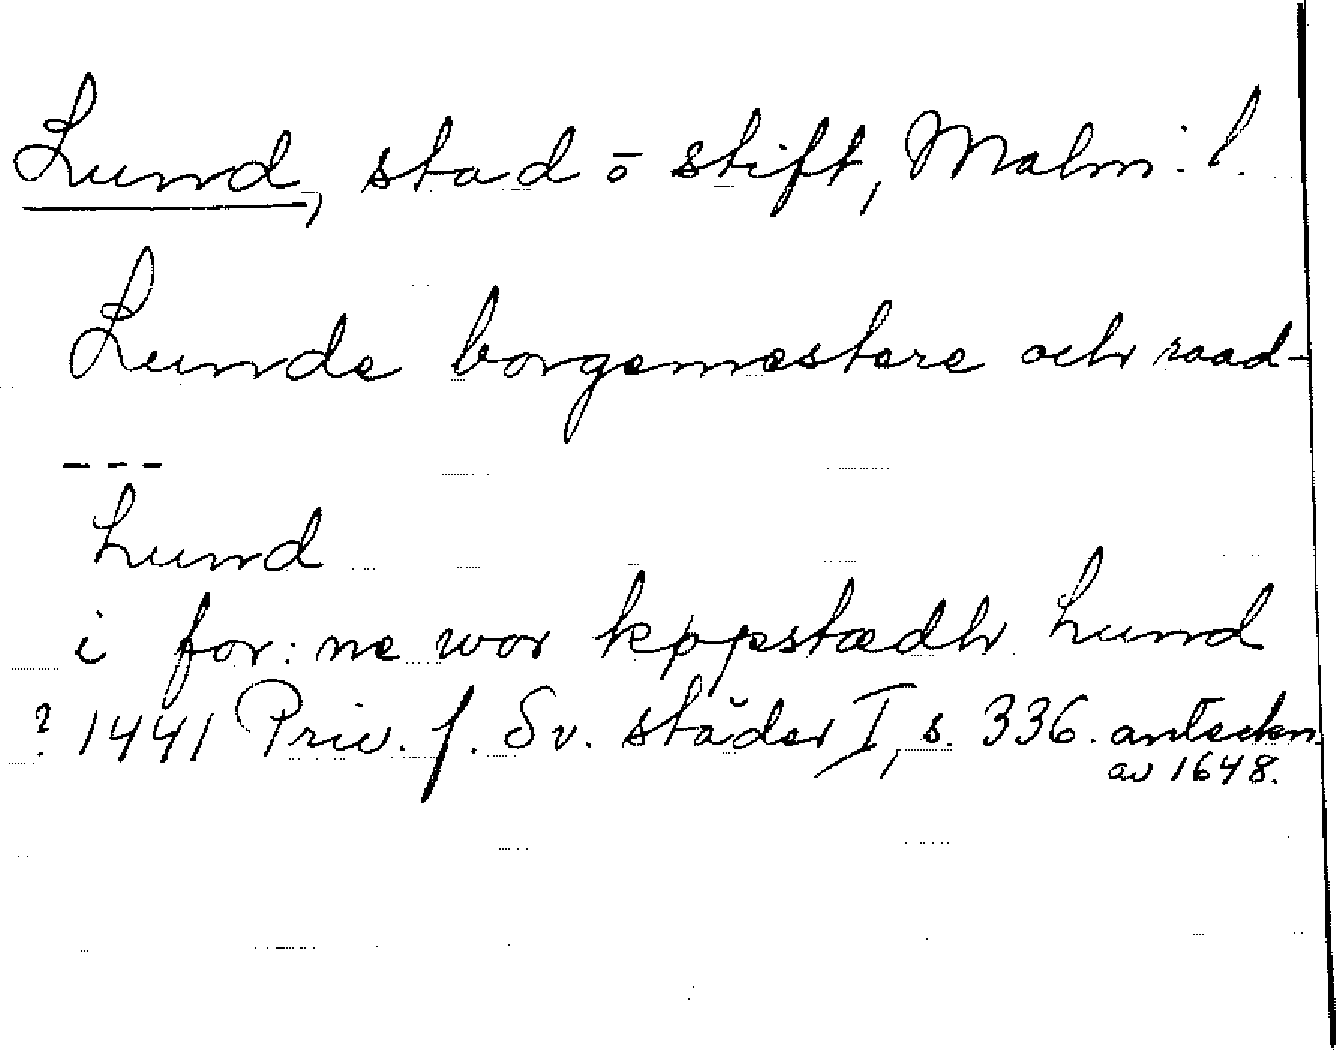 Lund, stad o stift, Malm. l.
Lunde borgemestere och raad-
---
Lund
i for: ne wor køpstædhr Lund
? 1441 Priv. f. Sv. städer I, s. 336. anteckn.
av 1648.